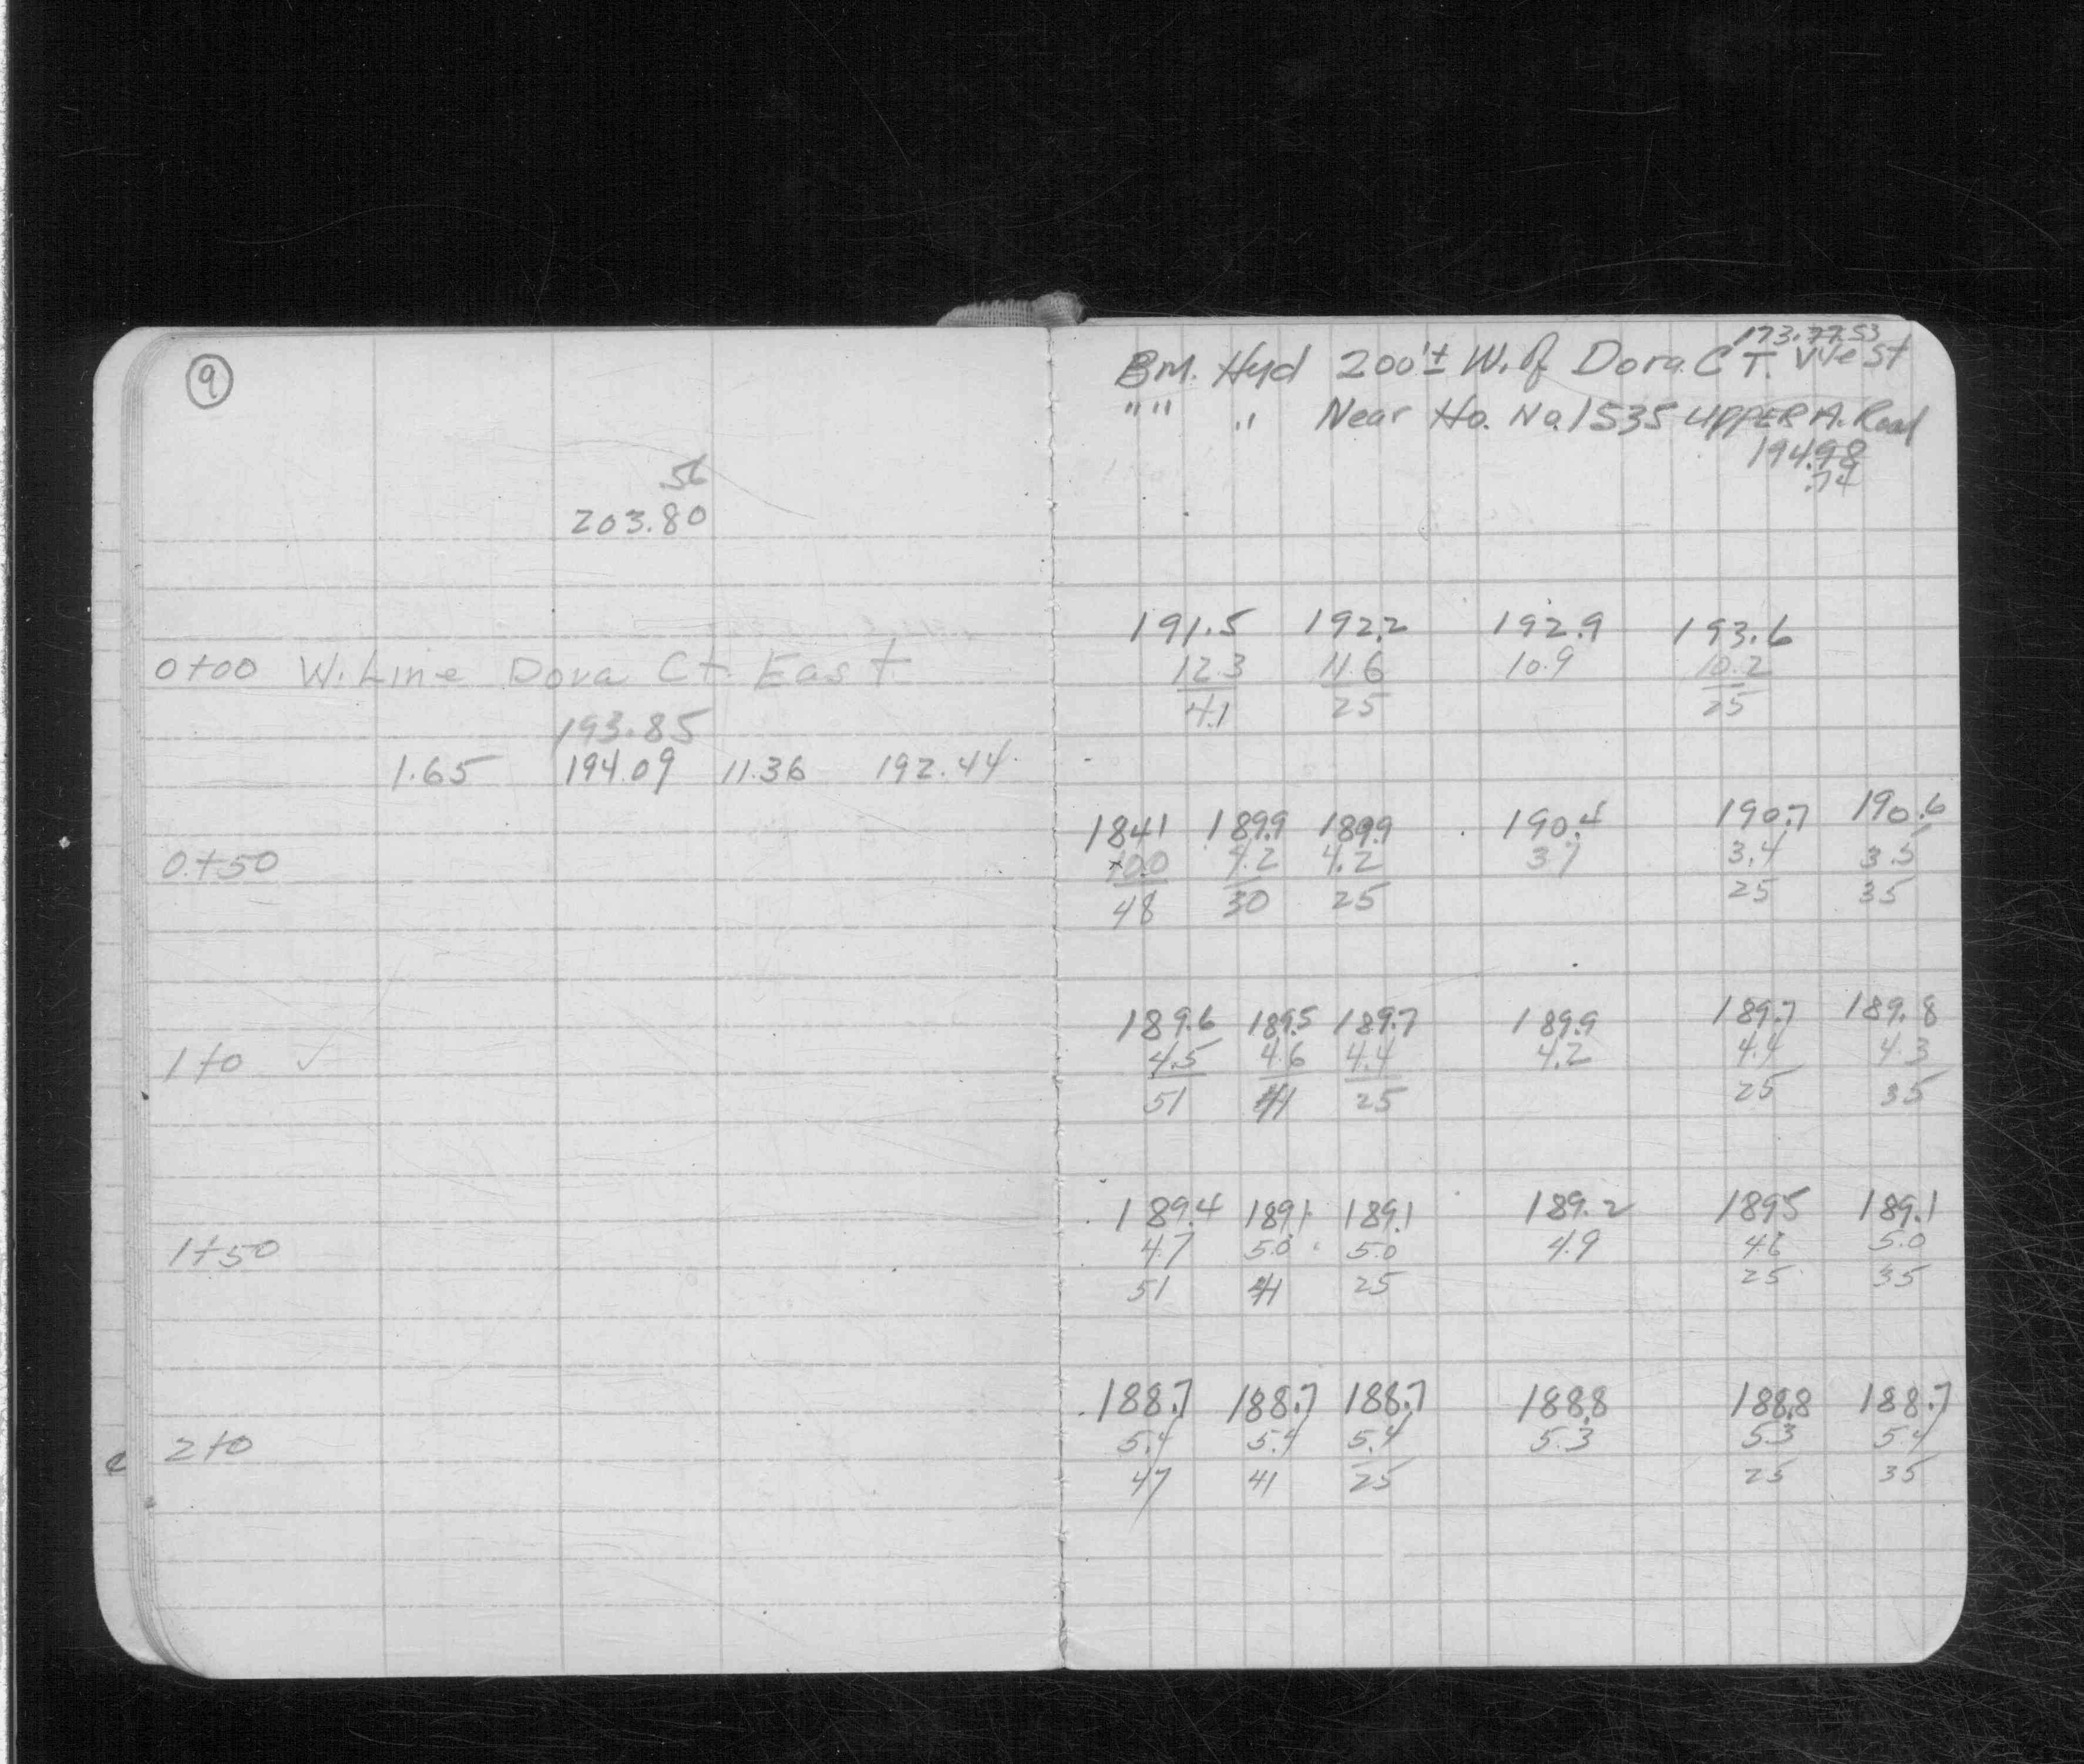 9
56
203.80
0+00 W. Line Dora Ct. East
193.85
1.65 194.09 11.36 192.44
0+50
1+0 ✓
1+50
2+0
173.77.53
BM. Hyd 200'± W. of Dora CT. West
" " " Near Ho. No. 1535 UPPER A. Road
194.98
.74
191.5 192.2 192.9 193.6
12.3 11.6 10.9 10.2
41 25 25
184.1 189.9 189.9 190.4 190.7 190.6
10.0 4.2 4.2 3.7 3.4 3.5
48 30 25 25 35
189.6 189.5 189.7 189.9 189.7 189.8
4.5 4.6 4.4 4.2 4.4 4.3
51 41 25 25 35
189.4 189.1 189.1 189.2 189.5 189.1
4.7 5.0 5.0 4.9 4.6 5.0
51 41 25 25 35
188.7 188.7 188.7 188.8 188.8 188.7
5.4 5.4 5.4 5.3 5.3 5.4
47 41 25 25 35